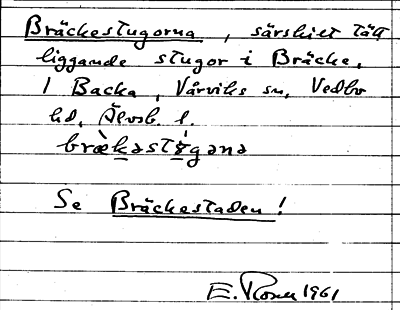 Bräckestugorna, särskilt tätt
liggande stugor i Bräcke,
1 Backa, Värviks sn, Vedbo
hd, Älvsb. l.
bræ̀kəstɷ́gənə
Se Bräckestaden!
E. 1961